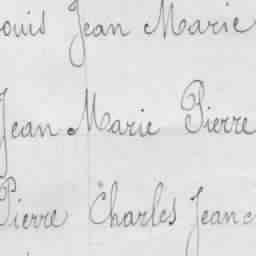 ouis Jean Marie
Jean Marie Pierre
Pierre Charles Jean